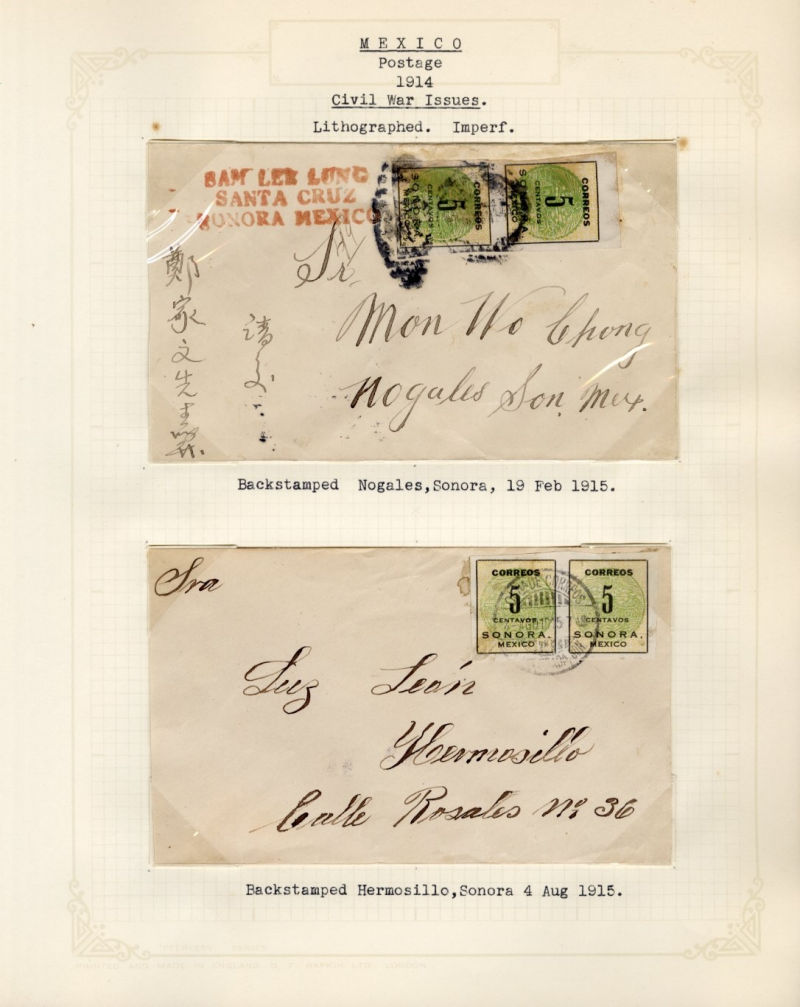 MEXICO
Postage
1914
Civil War Issues.
Lithographed. Imperf.
SAM LEE LUNG
SANTA CRUZ
SONORA MEXICO
CORREOS
5
CENTAVOS
SONORA,
MEXICO
CORREOS
5
CENTAVOS
SONORA,
MEXICO
Sr.
Mon Wo Chong
Nogales Son. Mex.
鄭家文先生
請交
Backstamped Nogales,Sonora, 19 Feb 1915.
Sra
CORREOS
5
CENTAVOS
SONORA,
MEXICO
CORREOS
5
CENTAVOS
SONORA,
MEXICO
DE CORREOS
Luz León
Hermosillo
Calle Rosales No. 36
Backstamped Hermosillo,Sonora 4 Aug 1915.
PRINTED AND MADE IN ENGLAND LTD. LONDON